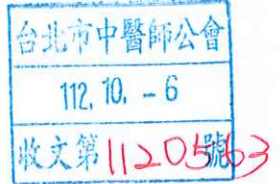 台北市中醫師公會
112. 10. - 6
收文第1120563號